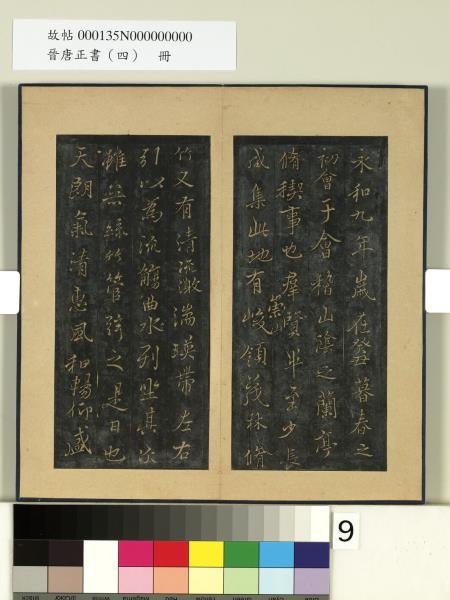 故帖 000135N000000000
晉唐正書（四） 冊
永和九年歲在癸丑暮春之
初會于會稽山陰之蘭亭
脩稧事也羣賢畢至少長
咸集此地有崇山峻領茂林脩
竹又有清流激湍暎帶左右
引以為流觴曲水列坐其次
雖無絲竹管弦之是日也
天朗氣清惠風和暢仰盛
9